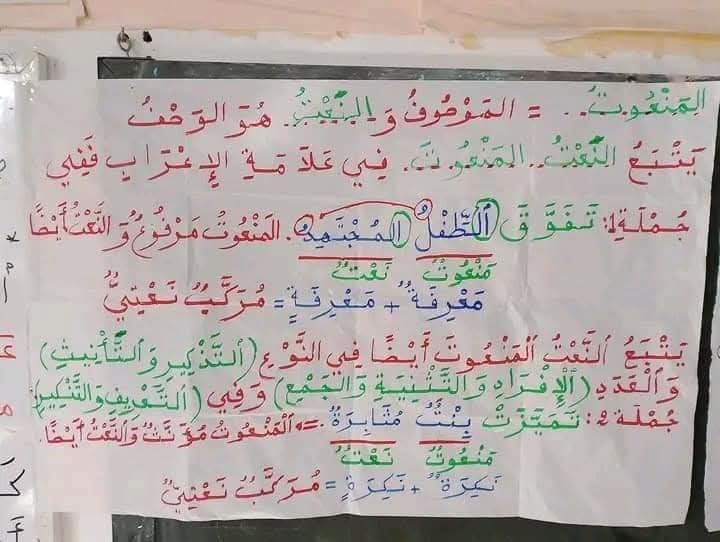 المَنْعُوتُ.. = المَوْصُوفُ وَ النَّعْتُ هُوَ الوَصْفُ
يَتْبَعُ النَّعْتُ.. المَنْعُوتَ. فِي عَلَامَةِ الإِعْرَابِ فَفِي
جُمْلَةِ 1: تَفَوَّقَ الطِّفْلُ المُجْتَهِدُ. المَنْعُوتُ مَرْفُوعٌ وَالنَّعْتُ أَيْضًا
مَنْعُوتٌ نَعْتٌ
مَعْرِفَةٌ + مَعْرِفَةٍ = مُرَكَّبٌ نَعْتِيٌّ
يَتْبَعُ النَّعْتُ المَنْعُوتَ أَيْضًا فِي النَّوْعِ (التَّذْكِيرِ وَالتَّأْنِيثِ)
وَالْعَدَدِ (الْإِفْرَادِ وَالتَّثْنِيَةِ وَالجَمْعِ) وَفِي (التَّعْرِيفِ وَالتَّنْكِيرِ)
جُمْلَة 2: تَمَيَّزَتْ بِنْتٌ مُثَابِرَةٌ. => المَنْعُوتُ مُؤَنَّثٌ وَالنَّعْتُ أَيْضًا.
مَنْعُوتٌ نَعْتٌ
نَكِرَةٌ + نَكِرَةٍ = مُرَكَّبٌ نَعْتِيٌّ